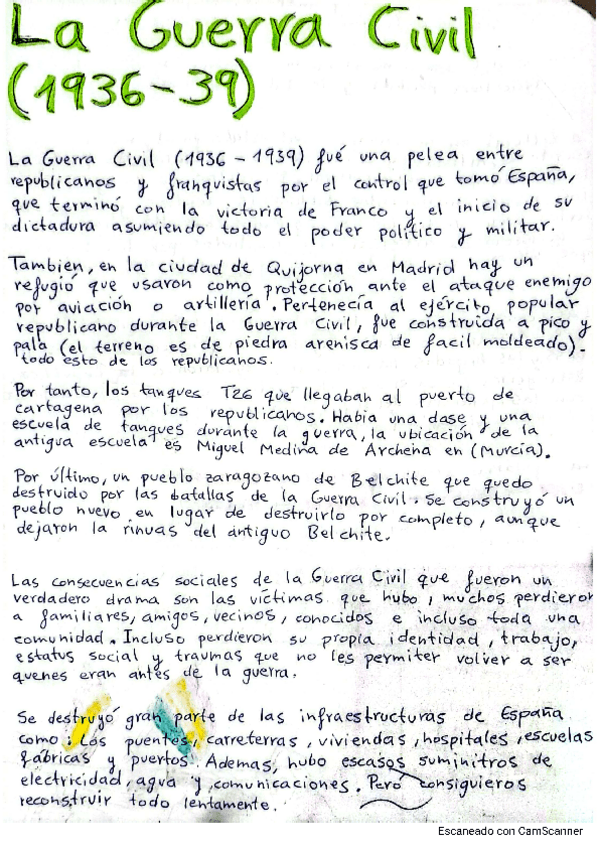 La Guerra Civil
(1936-39)
La Guerra Civil (1936 - 1939) fué una pelea entre
republicanos y franquistas por el control que tomó España,
que terminó con la victoria de Franco y el inicio de su
dictadura asumiendo todo el poder político y militar.
Tambien, en la ciudad de Quijorna en Madrid hay un
refugió que usaron como protección ante el ataque enemigo
por aviación o artillería. Pertenecía al ejército popular
republicano durante la Guerra Civil, fue construida a pico y
pala (el terreno es de piedra arenisca de facil moldeado).
todo esto de los republicanos.
Por tanto, los tanques T26 que llegaban al puerto de
cartagena por los republicanos. Habia una dase y una
escuela de tanques durante la guerra, la ubicación de la
antigua escuela es Miguel Medina de Archena en (Murcia).
Por último, un pueblo zaragozano de Belchite que quedo
destruido por las batallas de la Guerra Civil. Se construyó un
pueblo nuevo en lugar de destruirlo por completo, aunque
dejaron la rinuas del antiguo Belchite.
Las consecuencias sociales de la Guerra Civil que fueron un
verdadero drama son las víctimas que hubo, muchos perdieron
a familiares, amigos, vecinos, conocidos e incluso toda una
comunidad. Incluso perdieron su propia identidad, trabajo,
estatus social y traumas que no les permiter volver a ser
quenes eran antes de la guerra.
Se destruyó gran parte de las infraestructuras de España
como: Los puentes, carreterras, viviendas, hospitales, escuelas
fábricas y puertos. Ademas, hubo escasos suminitros de
electricidad, agua y comunicaciones. Peró consiguieros
reconstruir todo lentamente.
Escaneado con CamScanner